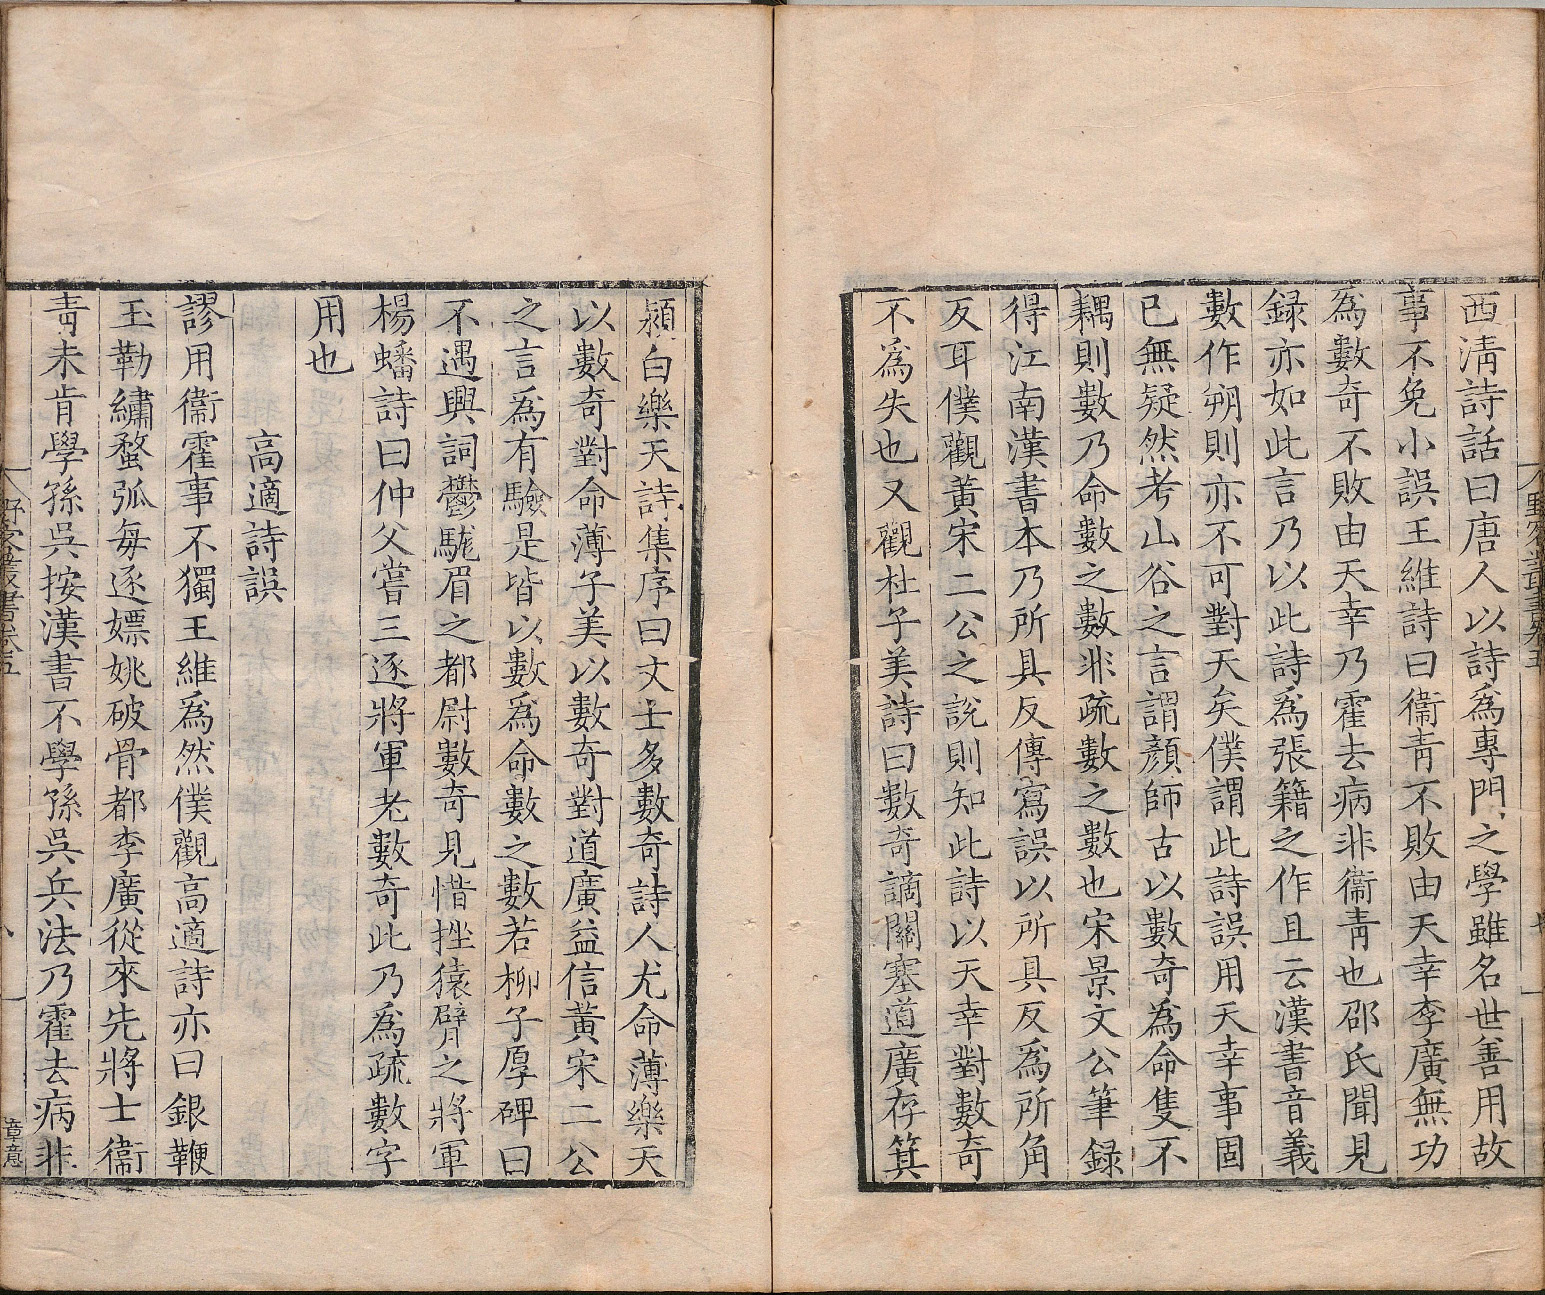 西淸詩話曰唐人以詩爲專門之學雖名世善用故
事不免小誤王維詩曰衞靑不敗由天幸李廣無功
爲數奇不敗由天幸乃霍去病非衞靑也邵氏聞見
録亦如此言乃以此詩爲張籍之作且云漢書音義
數作朔則亦不可對天矣僕謂此詩誤用天幸事固
已無疑然考山谷之言謂顔師古以數奇爲命隻不
耦則數乃命數之數非疏數之數也宋景文公筆録
得江南漢書本乃所具反傳寫誤以所具反爲所角
反耳僕觀黄宋二公之説則知此詩以天幸對數奇
不爲失也又觀杜子美詩曰數奇謫關塞道廣存箕
潁白樂天詩集序曰文士多數奇詩人尤命薄樂天
以數奇對命薄子美以數奇對道廣益信黄宋二公
之言爲有驗是皆以數爲命數之數若柳子厚碑曰
不遇興詞鬱駹眉之都尉數奇見惜挫猿臂之將軍
楊蟠詩曰仲父嘗三逐將軍老數奇此乃爲疏數字
用也
高適詩誤
謬用衞霍事不獨王維爲然僕觀高適詩亦曰銀鞭
玉勒繡蝥弧每逐嫖姚破骨都李廣從來先將士衞
靑未肯學孫吳按漢書不學孫吳兵法乃霍去病非
野客叢書卷五
八
章意